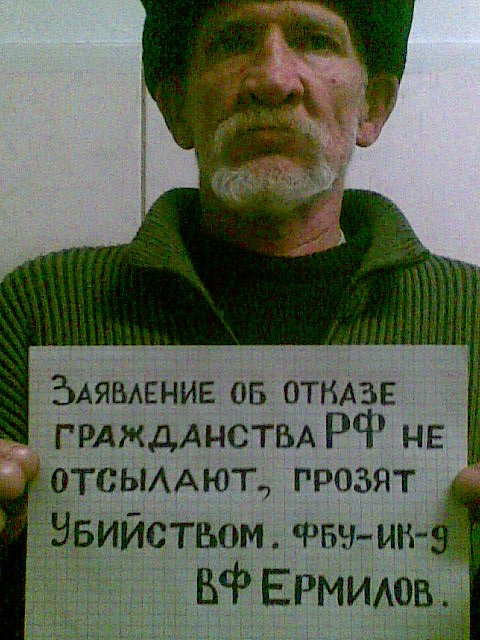 Заявление об отказе
гражданства РФ не
отсылают, грозят
убийством. ФБУ-ИК-9
ВФ Ермилов.